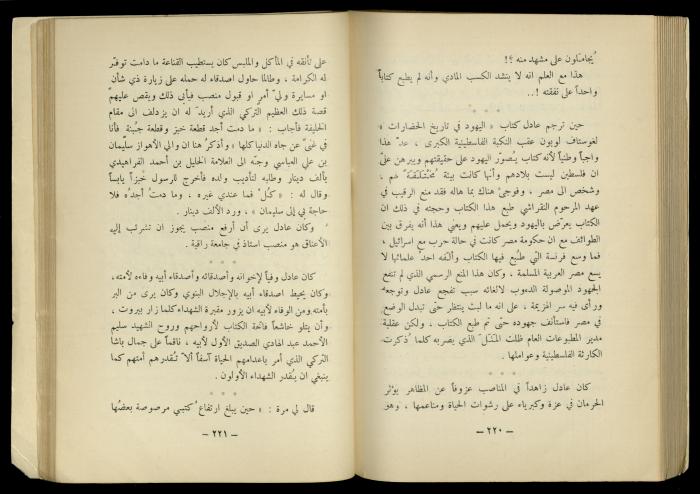 يُجاملون على مشهد منه ؟!
هذا مع العلم انه لا ينشد الكسب المادي وأنه لم يطبع كتاباً
واحداً على نفقته !..
* * *
حين ترجم عادل كتاب « اليهود في تاريخ الحضارات »
لغوستاف لوبون عقب النكبة الفلسطينية الكبرى ، عدّ هذا
واجباً وطنياً لأنه كتاب يُصوّر اليهود على حقيقتهم ويبرهن على
ان فلسطين ليست بلادهم وأنها كانت بيئة مُختلَقة لهم ،
وشخص الى مصر ، وفوجئ هناك بما هاله فقد منع الرقيب في
عهد المرحوم النقراشي طبع هذا الكتاب وحجته في ذلك ان
الكتاب يعرّض باليهود ويحمل عليهم ويعني هذا أنه يفرق بين
الطوائف مع ان حكومة مصر كانت في حالة حرب مع اسرائيل ،
فما وسع فرنسة التي طُبع فيها الكتاب وألّفه احد علمائها لا
يسع مصر العربية المسلمة ، وكان هذا المنع الرسمي الذي لم تنفع
الجهود الموصولة الدءوب لالغائه سبب تفجع عادل وتوجعه
ورأى فيه سر الهزيمة ، على انه ما لبث ينتظر حتى تبدل الوضع
في مصر فاستأنف جهوده حتى تم طبع الكتاب ، ولكن عقلية
مدير المطبوعات العام ظلت المثل الذي يضربه كلما ذُكرت
الكارثة الفلسطينية وعواملها .
* * *
كان عادل زاهداً في المناصب عزوفاً عن المظاهر يؤثر
الحرمان في عزة وكبرياء على رشوات الحياة ومناعمها ، وهو
— ٢٢٠ —
على تأنقه في المأكل والملبس كان يستطيب القناعة ما دامت توفّر
له الكرامة ، وطالما حاول اصدقاء له حمله على زيارة ذي شأن
او مسايرة وليّ امر او قبول منصب فيأبى ذلك ويقص عليهم
قصة ذلك العظيم التركي الذي أريد له ان يزدلف الى مقام
الخليفة فأجاب : « ما دمت أجد قطعة خبز وقطعة جُبنة فأنا
في غنىً عن جاه الدنيا كلها » وأذكر هنا ان والي الأهواز سليمان
بن علي العباسي وجّه الى العلامة الخليل بن أحمد الفراهيدي
بألف دينار وطالبه لتأديب ولده فأخرج للرسول خبزاً يابساً
وقال له : « كُلْ فما عندي غيره ، وما دمتُ أجدُه فلا
حاجة بي إلى سليمان » ، ورد الألف دينار .
وكان عادل يرى أن أرفع منصب يجوز ان تشرئب إليه
الأعناق هو منصب استاذ في جامعة راقية .
* * *
كان عادل وفياً لإخوانه وأصدقائه وأصدقاء أبيه وفاءه لأمته،
وكان يحيط اصدقاء أبيه بالإجلال البنوي وكان يرى من البر
بأمته ومن الوفاء لأبيه ان يزور مقبرة الشهداء كلما زار بيروت ،
وأن يتلو خاشعاً فاتحة الكتاب لأرواحهم وروح الشهيد سليم
الأحمد عبد الهادي الصديق الأول لأبيه ، ناقماً على جمال باشا
التركي الذي أمر باعدامهم الحياة آسفاً ألا تُقدرهم أمتهم كما
ينبغي ان يُقدر الشهداء الأولون .
* * *
قال لي مرة : « حين يبلغ ارتفاع كُتبي مرصوصة بعضُها
— ٢٢١ —